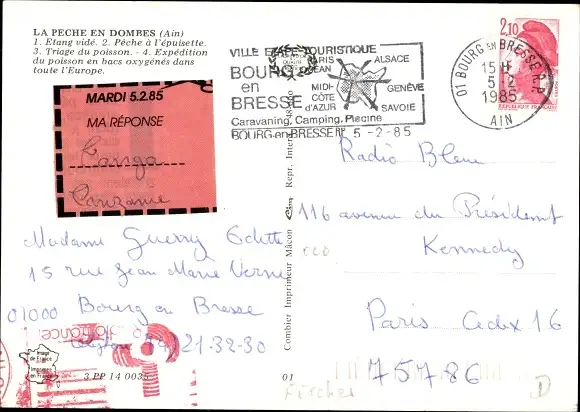 LA PECHE EN DOMBES (Ain)
1. Etang vidé. 2. Pêche à l'épuisette.
3. Triage du poisson. - 4. Expédition
du poisson en bacs oxygénés dans
toute l'Europe.
VILLE ETAPE TOURISTIQUE
BOURG
en
BRESSE
PARIS
JEAN
ALSACE
MIDI-
CÔTE
d'AZUR
GENÈVE
SAVOIE
Caravaning, Camping, Piscine
BOURG-en-BRESSE RP 5-2-85
01 BOURG EN BRESSE R.P.
15 H
5-2
1985
AIN
2,10
RÉPUBLIQUE FRANÇAISE
MARDI 5.2.85
MA RÉPONSE
Radio Bleu
116 avenue du Président
Kennedy
Paris Cedex 16
75786
Madame Guerry Odette
15 rue Jean Marie Verne
01000 Bourg en Bresse
21-32-30
Combier Imprimeur Mâcon
Repr. Interd.
Image
de France
Imprimée
en France
3 PP 14 0035
01
Fischer
D